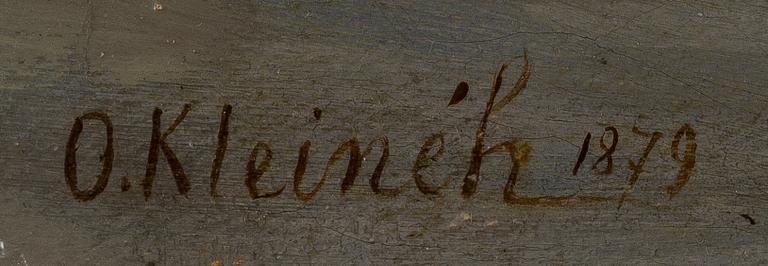 O. Kleinéh 1879